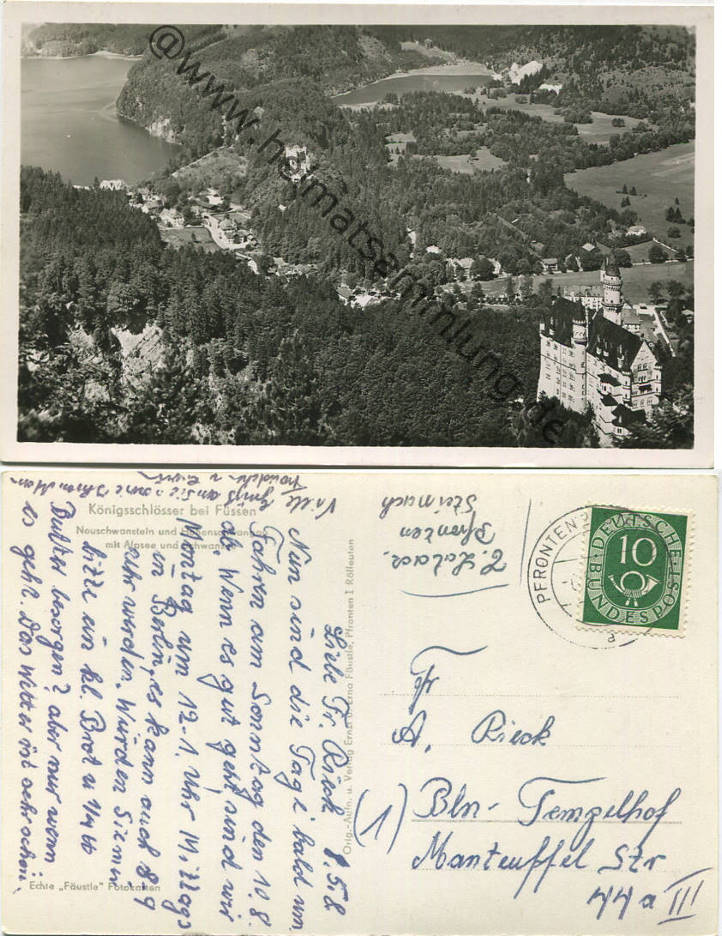 @www.heimatsammlung.de
Königsschlösser bei Füssen
Neuschwanstein und Hohenschwangau
mit Alpsee und Schwansee
Echte „Fäustle“ Fotokarten
Orig.-Aufn. u. Verlag Ernst u. Erna Fäustle, Pfronten I Röfleuten
Pfronten
Steinach
PFRONTEN
a
DEUTSCHE
10
BUNDESPOST
Fr
A. Rieck
(1) Bln- Tempelhof
Manteuffel Str
44a III
8.58
Liebe Fr. Rieck
Nun sind die Tage bald um.
Fahren am Sonntag den 10.8.
ab. Wenn es gut geht sind wir
Montag um 12-1 Uhr
in Berlin, es kann auch 8-9
Uhr werden. Würden Sie mir
bitte ein kl. Brot u ¼ lb
Butter besorgen? aber nur wenn
es geht. Das Wetter ist sehr schön.
Viele